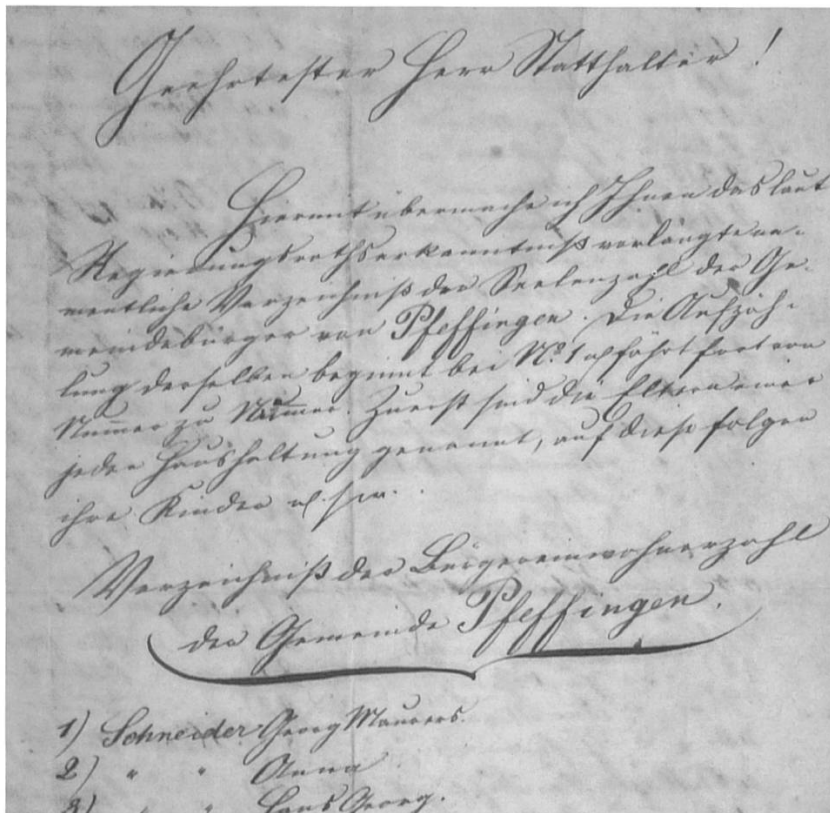 Geehrtester Herr Statthalter!
Hiermit übermache ich Ihnen das laut
Regierungsrathserkanntniß verlangte na-
mentliche Verzeichniß der Seelenzahl der Ge-
meindebürger von Pfeffingen. Die Aufzäh-
lung derselben beginnt bei No. 1 u fährt fort von
Nummer zu Nummer. Zuerst sind die Eltern einer
jeden Haushaltung genannt, auf diese folgen
ihre Kinder u. s. w.
Verzeichniß der Bürgereinwohnerzahl
der Gemeinde Pfeffingen.
1) Schneider Georg Maurers.
2) " " Anna
3) " " Hans Georg.